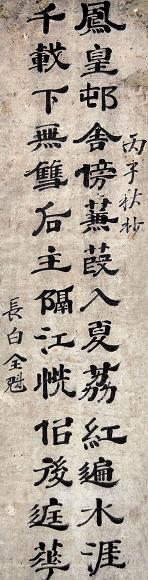 丙子秋杪
鳳皇邨舍傍蒹葭入夏荔紅遍水涯
千載下無雙后主隔江恍佀後庭華
長白全魁